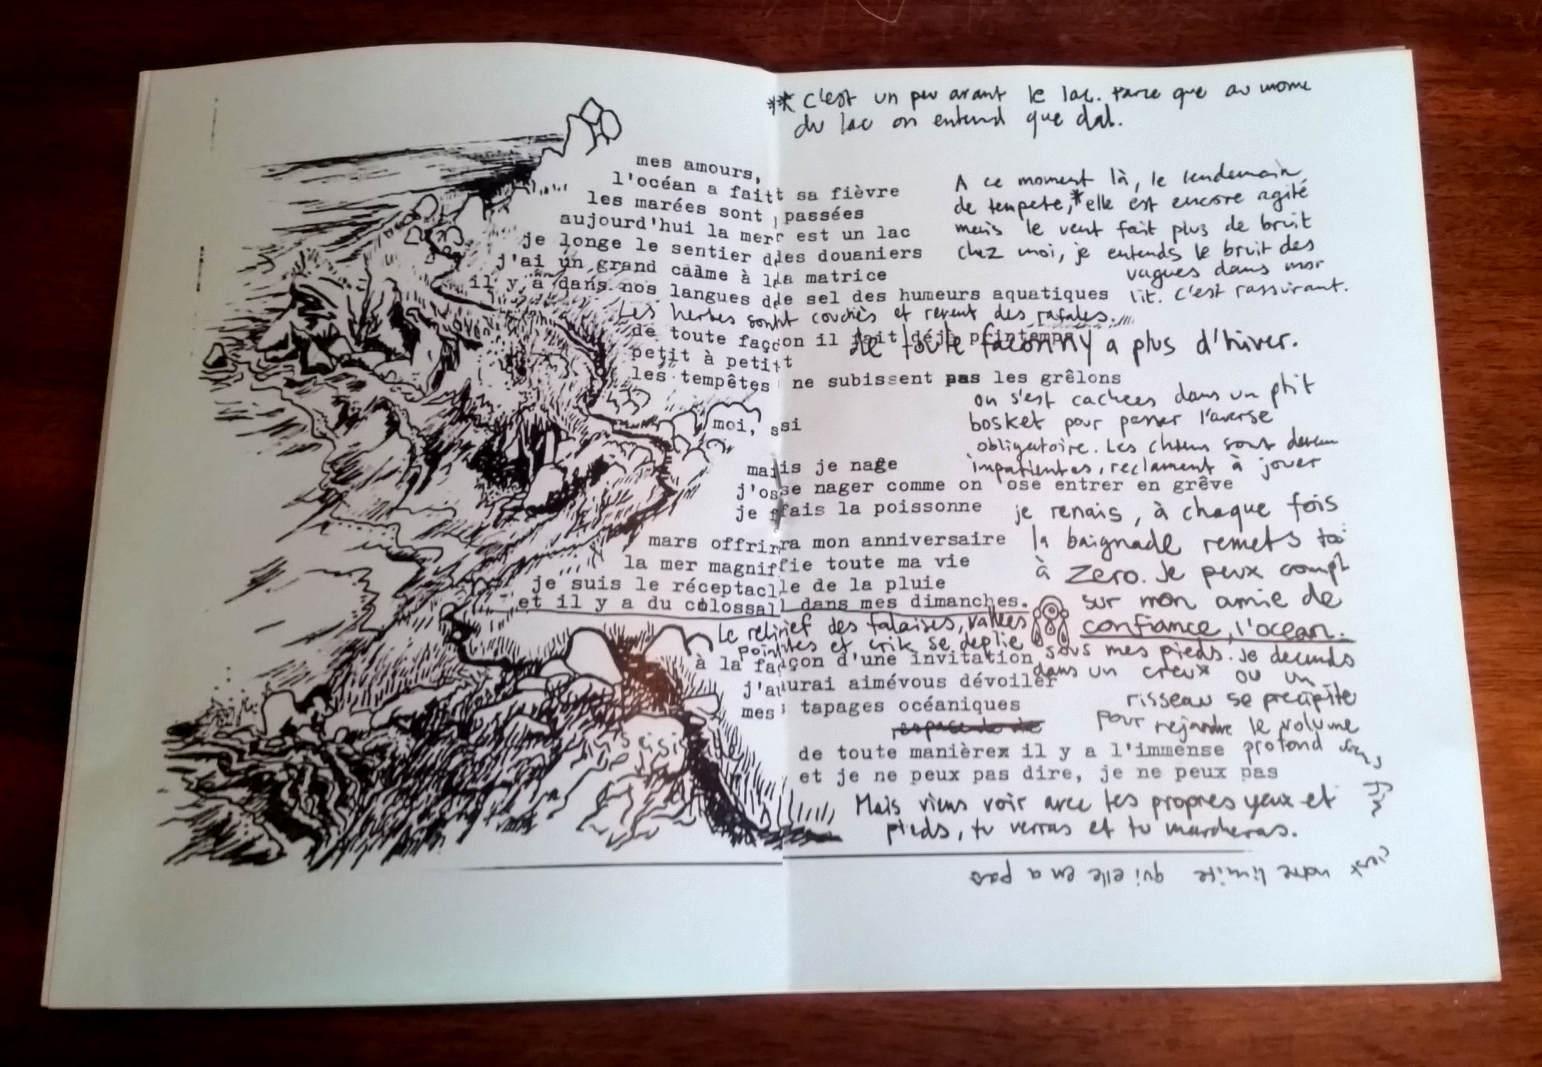 ** c'est un peu avant le lac. Parce que au mome
du lac on entend que dal.
mes amours,
l'océan a fait sa fièvre
les marées sont passées
aujourd'hui la mer est un lac
je longe le sentier des douaniers
j'ai un grand câàme à la matrice
il y a dans nos langues de sel des humeurs aquatiques
A ce moment là, le lendemain
de tempete,* elle est encore agité
mais le vent fait plus de bruit
chez moi, je entends le bruit des
vagues dans mon
lit. C'est rassurant.
Les herbes sont couchés et revent des rafales.
de toute façon il fait déjà printemps
de toute façon n'y a plus d'hiver.
petit à petit
les tempêtes ne subissent pas les grêlons
on s'est cachées dans un ptit
bosket pour passer l'averse
obligatoire. Les chiens sont devenu
impatientes, réclament à jouer
moi, si
mais je nage
j'ose nager comme on ose entrer en grêve
je fais la poissonne
je renais, à chaque fois
la baignade remets toi
à zero. Je peux compt
sur mon amie de
confiance, l'ocean.
mars offrira mon anniversaire
la mer magnifie toute ma vie
je suis le réceptacle de la pluie
et il y a du colossal dans mes dimanches.
Le relief des falaises, vallées
pointes et crik se déplie sous mes pieds. Je decends
à la façon d'une invitation
dans un creux ou un
j'aurai aimévous dévoiler
risseau se précipite
mes tapages océaniques
pour rejandre le volume
profond sans fin
de toute manièrex il y a l'immense
et je ne peux pas dire, je ne peux pas
Mais viens voir avec tes propres yeux et
pieds, tu verras et tu marcheras.
c'est notre limite qui elle en a pas